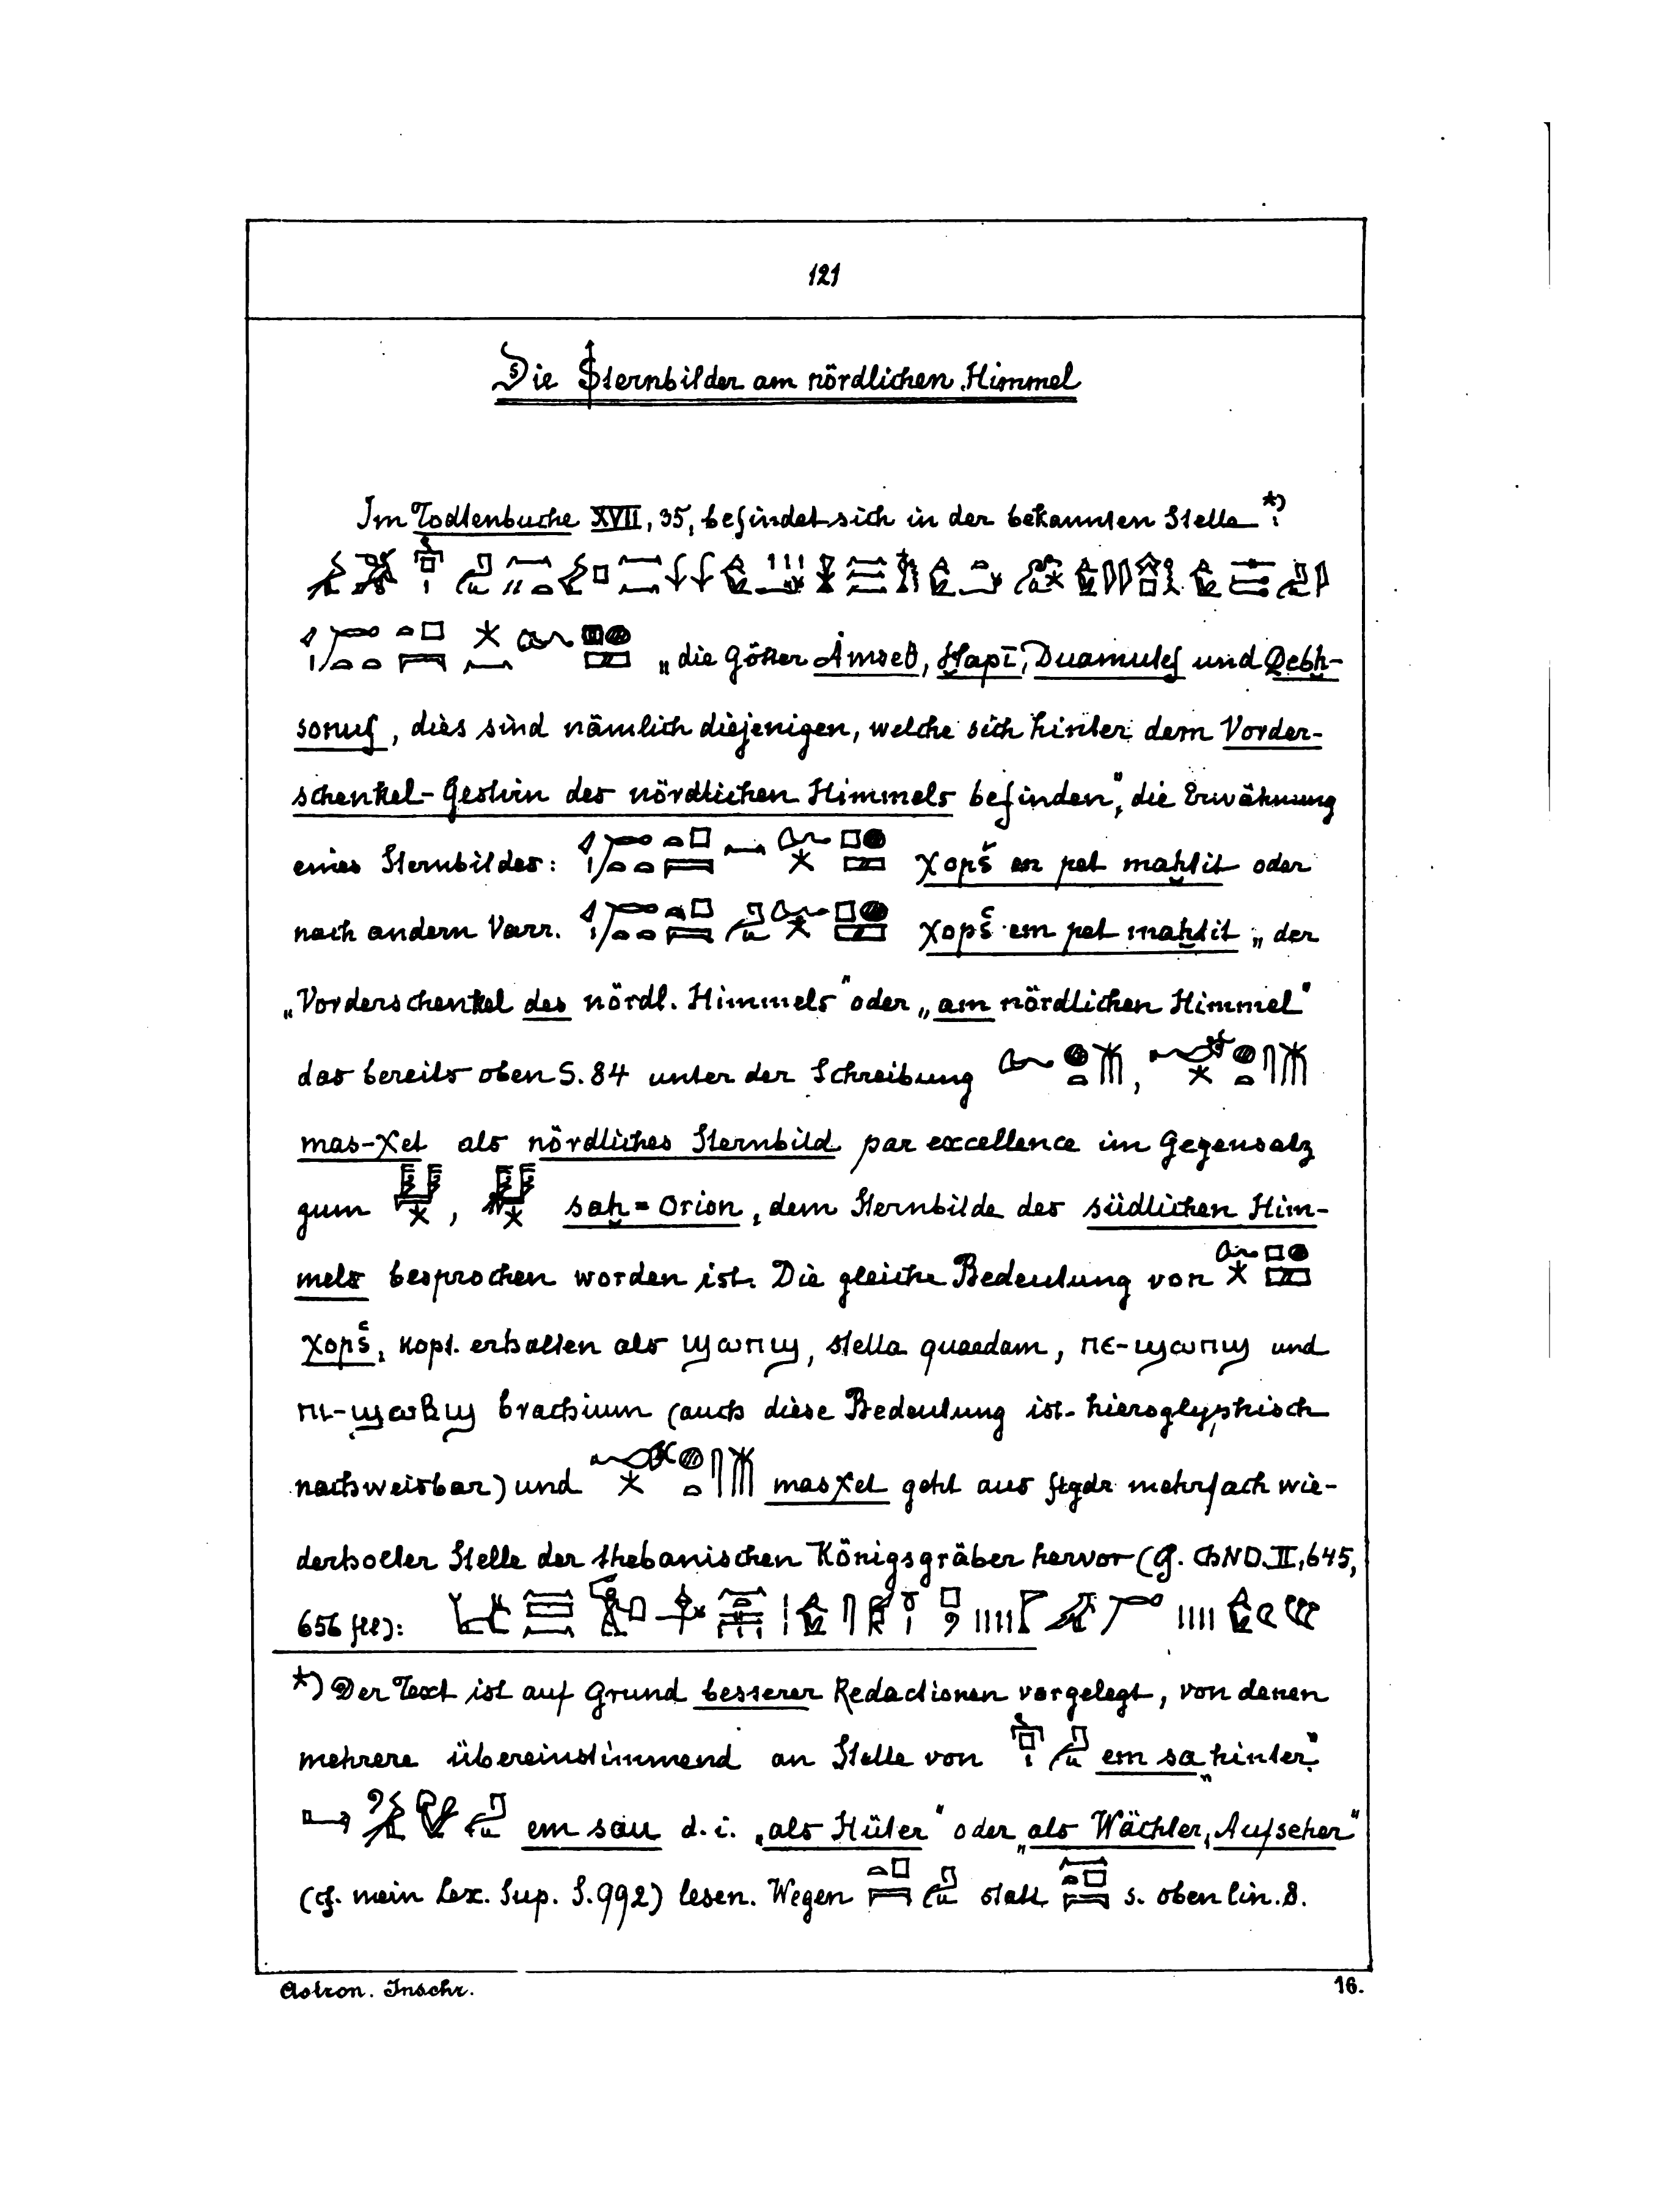 121
Die Sternbilder am nördlichen Himmel
Im Todtenbuche XVII, 35, befindet sich in der bekannten Stelle *):
„die Götter Amset, Ḥapi, Duamutef und Qebḥ-
sonuf, dies sind nämlich diejenigen, welche sich hinter dem Vorder-
schenkel-Gestirn des nördlichen Himmels befinden", die Erwähnung
eines Sternbildes: χopš en pet maḥtit oder
nach andern Varr. χopš em pet maḥtit „der
„Vorderschenkel des nördl. Himmels" oder „am nördlichen Himmel"
das bereits oben S. 84 unter der Schreibung ,
mas-χet als nördliches Sternbild par excellence im Gegensatz
zum , saḥ = Orion, dem Sternbilde des südlichen Him-
mels besprochen worden ist. Die gleiche Bedeutung von
χopš, kopt. erhalten als ϣⲱⲡϣ, stella quaedam, ⲡⲉ-ϣⲱⲡϣ und
ⲡⲓ-ϣⲱⲃϣ brachium (auch diese Bedeutung ist hieroglyphisch
nachweisbar) und masχet geht aus flgdr mehrfach wie-
derholter Stelle der thebanischen Königsgräber hervor (cf. ChND. II, 645,
656 fll):
*) Der Text ist auf Grund besserer Redactionen vorgelegt, von denen
mehrere übereinstimmend an Stelle von em sa „hinter"
em sau d. i. „als Hüter" oder „als Wächter, Aufseher"
(cf. mein Lex. Sup. S. 992) lesen. Wegen statt s. oben lin. 8.
Astron. Inschr. 16.